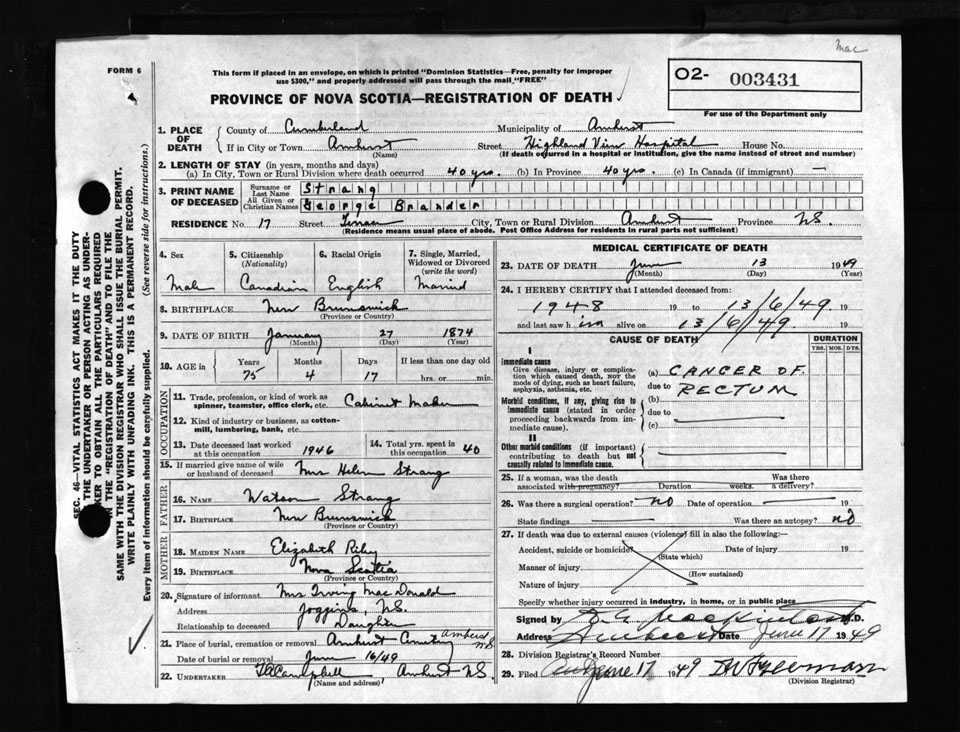 Mac
FORM 6
This form if placed in an envelope, on which is printed "Dominion Statistics—Free, penalty for improper
use $300," and properly addressed will pass through the mail "FREE"
O2- 003431
For use of the Department only
PROVINCE OF NOVA SCOTIA—REGISTRATION OF DEATH
SEC. 46—VITAL STATISTICS ACT MAKES IT THE DUTY
OF THE UNDERTAKER OR PERSON ACTING AS UNDER-
TAKER TO OBTAIN ALL THE PARTICULARS REQUIRED
IN THE "REGISTRATION OF DEATH" AND TO FILE THE
SAME WITH THE DIVISION REGISTRAR WHO SHALL ISSUE THE BURIAL PERMIT.
WRITE PLAINLY WITH UNFADING INK. THIS IS A PERMANENT RECORD.
Every item of information should be carefully supplied. (See reverse side for instructions.)
1. PLACE OF DEATH
County of Cumberland Municipality of Amherst
If in City or Town Amherst Street Highland View Hospital House No.
(Name) (If death occurred in a hospital or institution, give the name instead of street and number)
2. LENGTH OF STAY (in years, months and days)
(a) In City, Town or Rural Division where death occurred 40 yrs. (b) In Province 40 yrs. (c) In Canada (if immigrant) —
3. PRINT NAME OF DECEASED
Surname or Last Name Strang
All Given or Christian Names George Brander
RESIDENCE No. 17 Street Terrace City, Town or Rural Division Amherst Province NS
(Residence means usual place of abode. Post Office Address for residents in rural parts not sufficient)
4. Sex Male
5. Citizenship (Nationality) Canadian
6. Racial Origin English
7. Single, Married, Widowed or Divorced (write the word) Married
8. BIRTHPLACE New Brunswick
(Province or Country)
9. DATE OF BIRTH January 27 1874
(Month) (Day) (Year)
10. AGE in Years 75 Months 4 Days 17 If less than one day old hrs. or min.
OCCUPATION
11. Trade, profession, or kind of work as spinner, teamster, office clerk, etc. Cabinet Maker
12. Kind of industry or business, as cotton-mill, lumbering, bank, etc.
13. Date deceased last worked at this occupation 1946
14. Total yrs. spent in this occupation 40
15. If married give name of wife or husband of deceased Mrs Helen Strang
FATHER
16. NAME Watson Strang
17. BIRTHPLACE New Brunswick
(Province or Country)
MOTHER
18. MAIDEN NAME Elizabeth Riley
19. BIRTHPLACE Nova Scotia
(Province or Country)
20. Signature of informant Mrs Irving MacDonald
Address Joggins, N.S.
Relationship to deceased Daughter
21. Place of burial, cremation or removal Amherst Cemetery Amherst NS
Date of burial or removal June 16/49
22. UNDERTAKER Campbell, Amherst NS.
(Name and address)
MEDICAL CERTIFICATE OF DEATH
23. DATE OF DEATH June 13 1949
(Month) (Day) (Year)
24. I HEREBY CERTIFY that I attended deceased from:
1948 19 to 13/6/49. 19
and last saw him alive on 13/6/49. 19
CAUSE OF DEATH DURATION
YRS. MOS. DYS.
I
Immediate cause
Give disease, injury or complication which caused death, NOT the mode of dying, such as heart failure, asphyxia, asthenia, etc.
(a) CANCER OF
due to RECTUM
Morbid conditions, if any, giving rise to immediate cause (stated in order proceeding backwards from immediate cause).
(b)
due to
(c)
II
Other morbid conditions (if important) contributing to death but not causally related to immediate cause.
25. If a woman, was the death associated with pregnancy? Duration weeks. Was there a delivery?
26. Was there a surgical operation? NO Date of operation 19
State findings Was there an autopsy? NO
27. If death was due to external causes (violence) fill in also the following:
Accident, suicide or homicide? Date of injury 19
(State which)
Manner of injury
(How sustained)
Nature of injury
Specify whether injury occurred in industry, in home, or in public place
Signed by M.D.
Address Amherst Date June 17 1949
28. Division Registrar's Record Number
29. Filed June 17 1949
(Division Registrar)